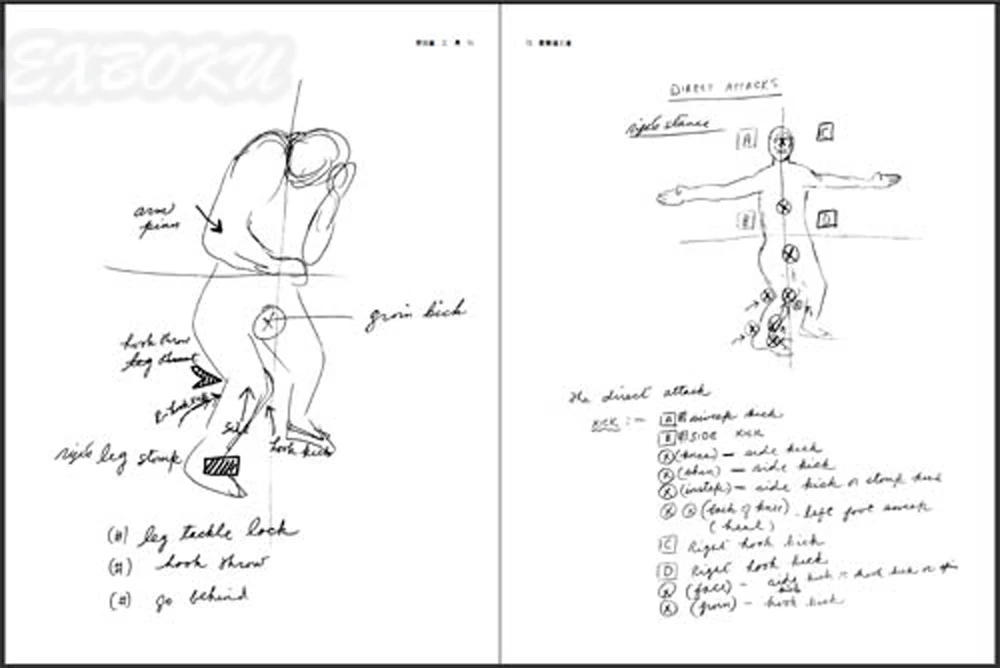 EXBOKU
arm
pins
groin kick
hook throw
leg thrust
side
hook kick
right leg stomp
(#) leg tackle lock
(#) hook throw
(#) go behind
DIRECT ATTACKS
right stance
A
C
B
D
The direct attack
KICK :- A sweep kick
B SIDE KICK
(knee) - side kick
(shin) - side kick
(instep) - side kick or stomp kick
(back of knee) - left foot sweep
(heel)
C Right hook kick
D Right hook kick
(face) - side kick or hook kick or spin
(groin) - hook kick